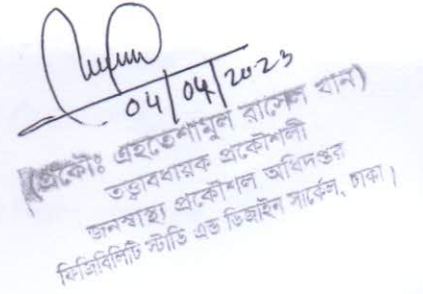 04/04/2023
(প্রকৌঃ এহতেশামুল রাসেল খান)
তত্ত্বাবধায়ক প্রকৌশলী
জনস্বাস্থ্য প্রকৌশল অধিদপ্তর
ফিজিবিলিটি স্টাডি এন্ড ডিজাইন সার্কেল, ঢাকা।